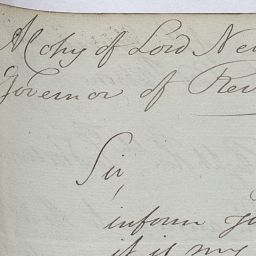 A Copy of Lord
Governor of
Sir,
inform
it is my